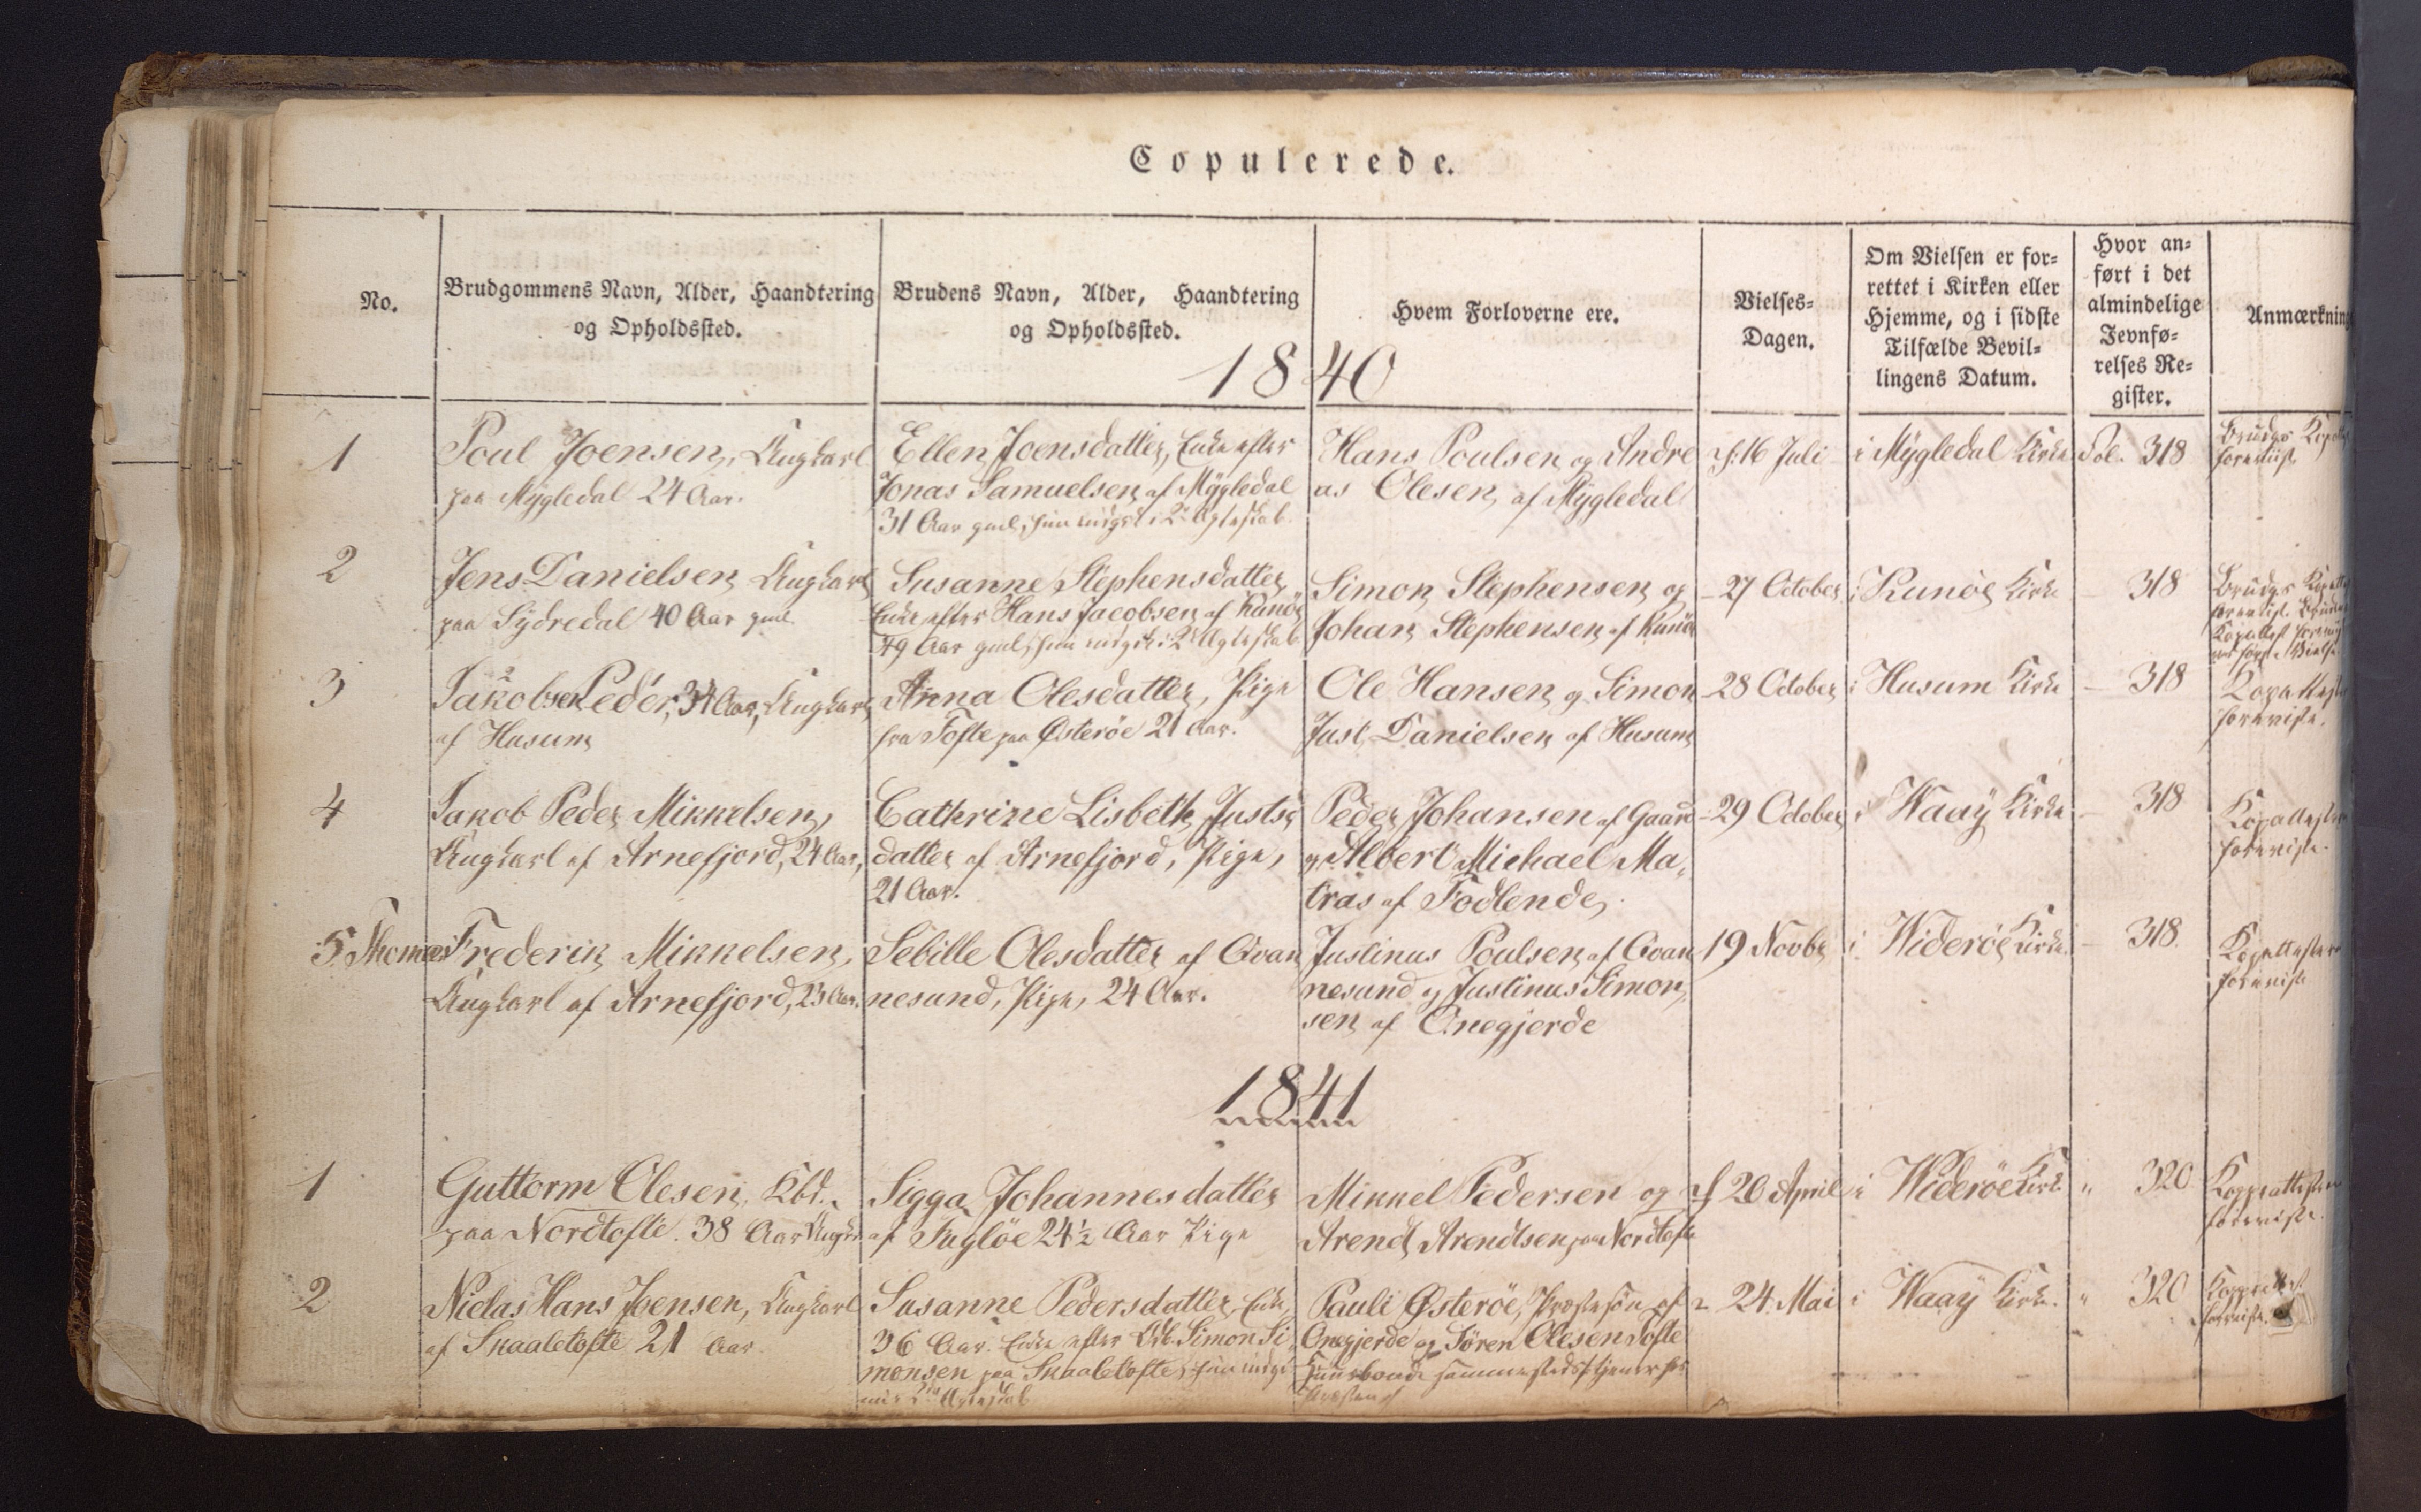 Copulerede.
No.
Brudgommens Navn, Alder, Haandtering
og Opholdssted.
Brudens Navn, Alder, Haandtering
og Opholdssted.
Hvem Forloverne ere.
Vielses-
Dagen.
Om Vielsen er for-
rettet i Kirken eller
Hjemme, og i sidste
Tilfælde Bevil-
lingens Datum.
Hvor an-
ført i det
almindelige
Jevnfø-
relses Re-
gister.
Anmærkning
1840
1
Poul Joensen, Ungkarl
paa Mygledal 24 Aar.
Ellen Joensdatter, Enke efter
Jonas Samuelsen af Mygledal
31 Aar gml, hun indgik i 2 Ægteskab.
Hans Poulsen og Andre
as Olesen af Mygledal
16 Juli
i Mygledal Kirke
Fol. 318
Brudgs
foreviist
2
Jens Danielsen Ungkarl
paa Sydredal 40 Aar gml
Susanne Stephensdatter
Enke efter Hans Jacobsen af Kunöe
49 Aar gml, hun indgik i 2 Ægteskab
Simon Stephensen og
Johan Stephensen af Kunöe
- 27 October
i Kunöe Kirke
- 318
Brudgs
3
Jakobsen Peder, 34 Aar, Ungkarl
af Husum
Anna Olesdatter, Pige
fra Tofte paa Østeröe 21 Aar.
Ole Hansen og Simon
Just Danielsen af Husum
- 28 October
i Husum Kirke
- 318
Kopattester
foreviste.
4
Jakob Peder Mikkelsen,
Ungkarl af Arnefjord, 24 Aar,
Cathrine Lisbeth Justs
datter af Arnefjord, Pige,
21 Aar.
Peder Johansen af Gaard
og Albert Michael Ma,
tras af Fodlende,
- 29 October
i Waaÿ Kirke
- 318
Kopattester
foreviste.
5. Thomas Frederik Mikkelsen,
Ungkarl af Arnefjord, 23 Aar.
Sebille Olesdatter af Qvan
nesund, Pige, 24 Aar.
Justinus Poulsen af Qvan
nesund og Justinus Simon,
sen af Onegjerde
19 Novbr
i Wideröe Kirke
- 318.
Kopattester
foreviste
1841
1
Guttorm Olesen, Kbd.
paa Nordtofte. 38 Aar
Sigga Johannesdatter
af Fuglöe 24 ½ Aar Pige
Mikkel Pedersen og
Arendt Arendtsen paa Nordtofte
20 April
i Wideröe Kirke
" 320
Koppeattester
foreviste.
2
Nielas Hans Joensen, Ungkarl
af Skaaletofte 21 Aar.
Susanne Pedersdatter, Enke,
36 Aar. Enke efter Simon Si,
monsen paa Skaaletofte, hun indgik
2 Ægteskab
Pauli Østeröe, af
Onegjerde og Sören Olesen Tofte
sammesteds
24 Mai
i Waaÿ Kirke.
" 320
foreviste.